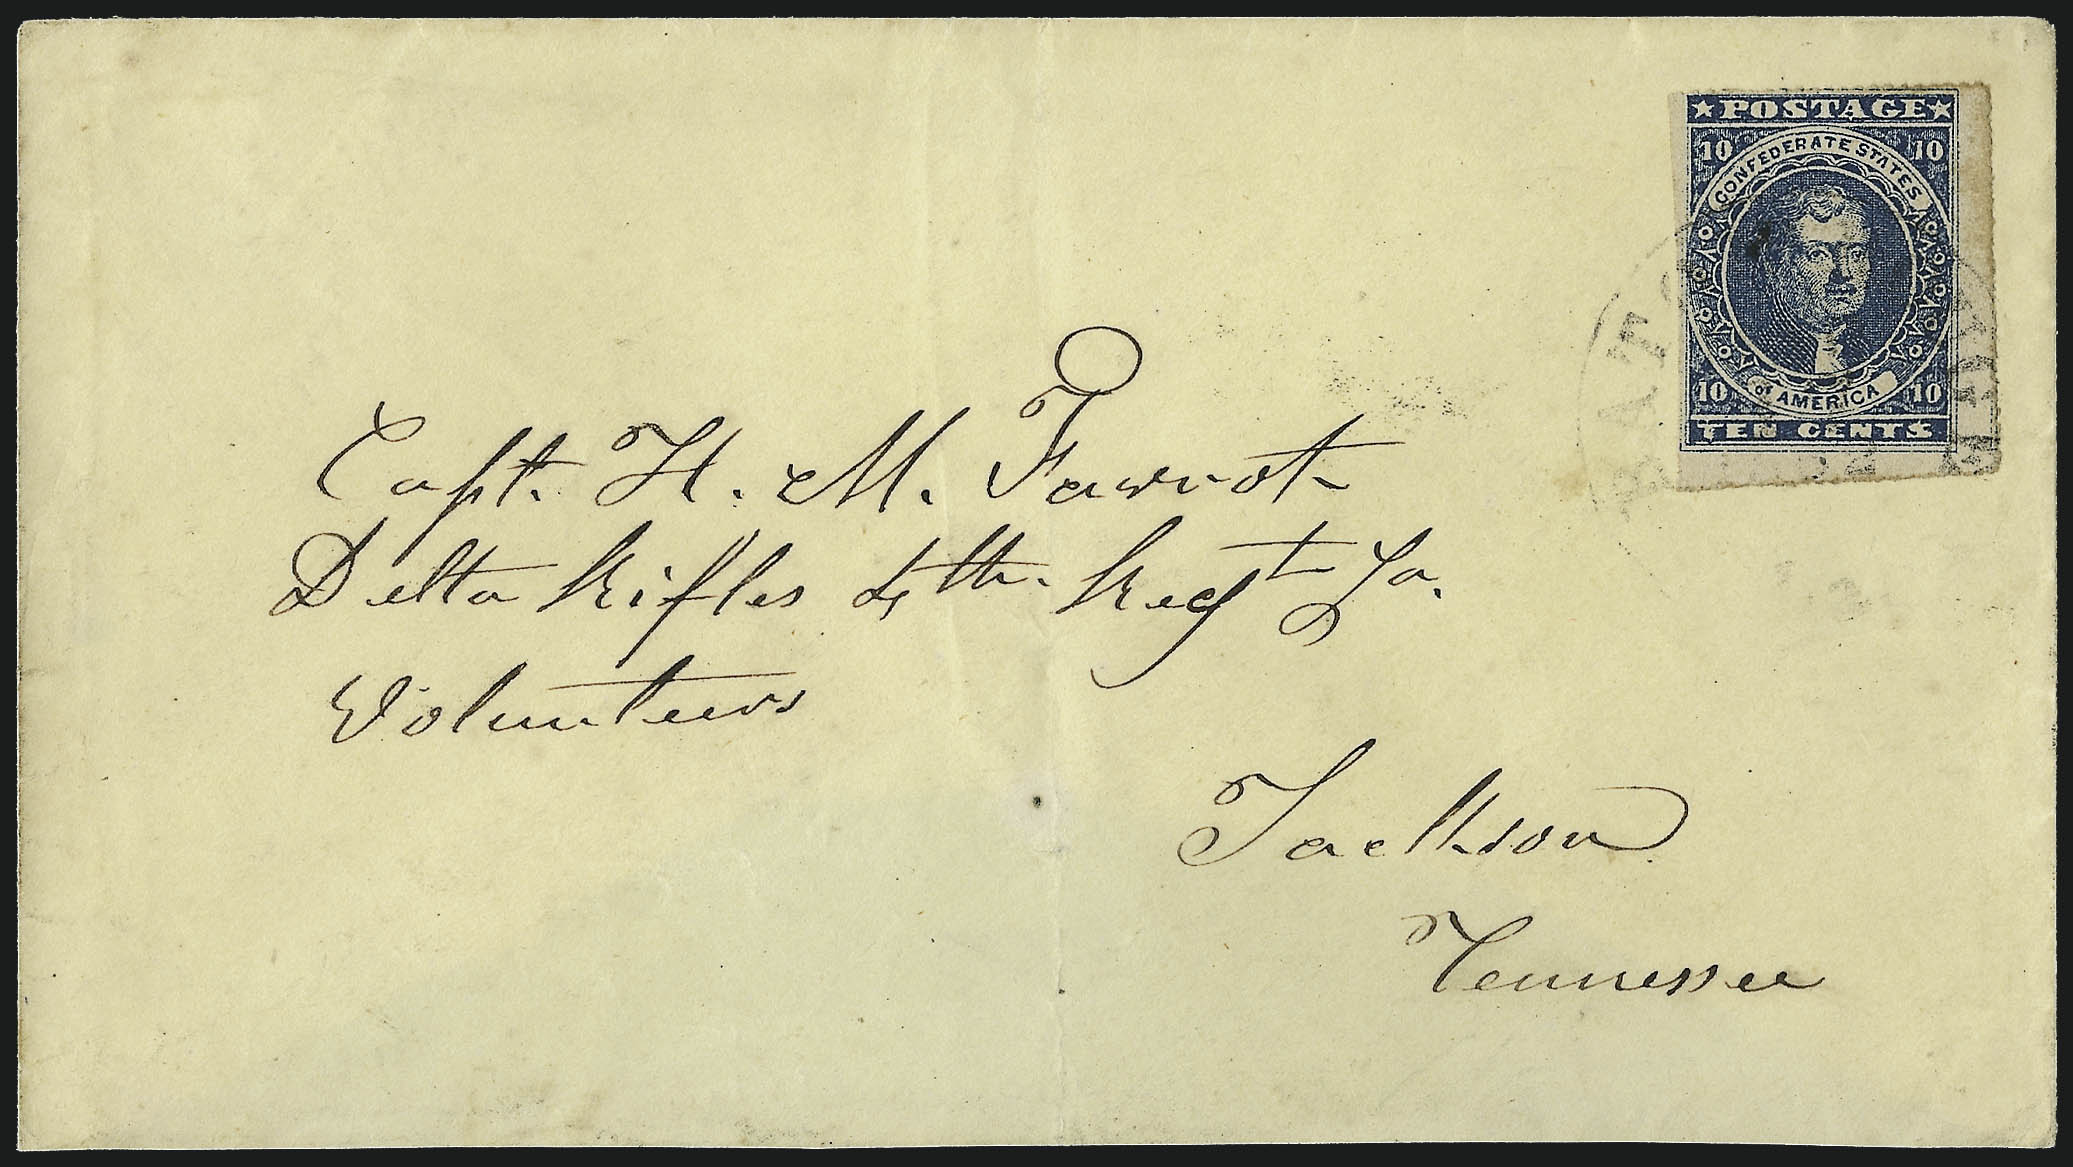 ★POSTAGE★
10 10
CONFEDERATE STATES
of AMERICA
10 10
TEN CENTS
BATO
Capt. H. M. Favrot
Delta Rifles 4th. Regt La.
Volunteers
Jackson
Tennessee